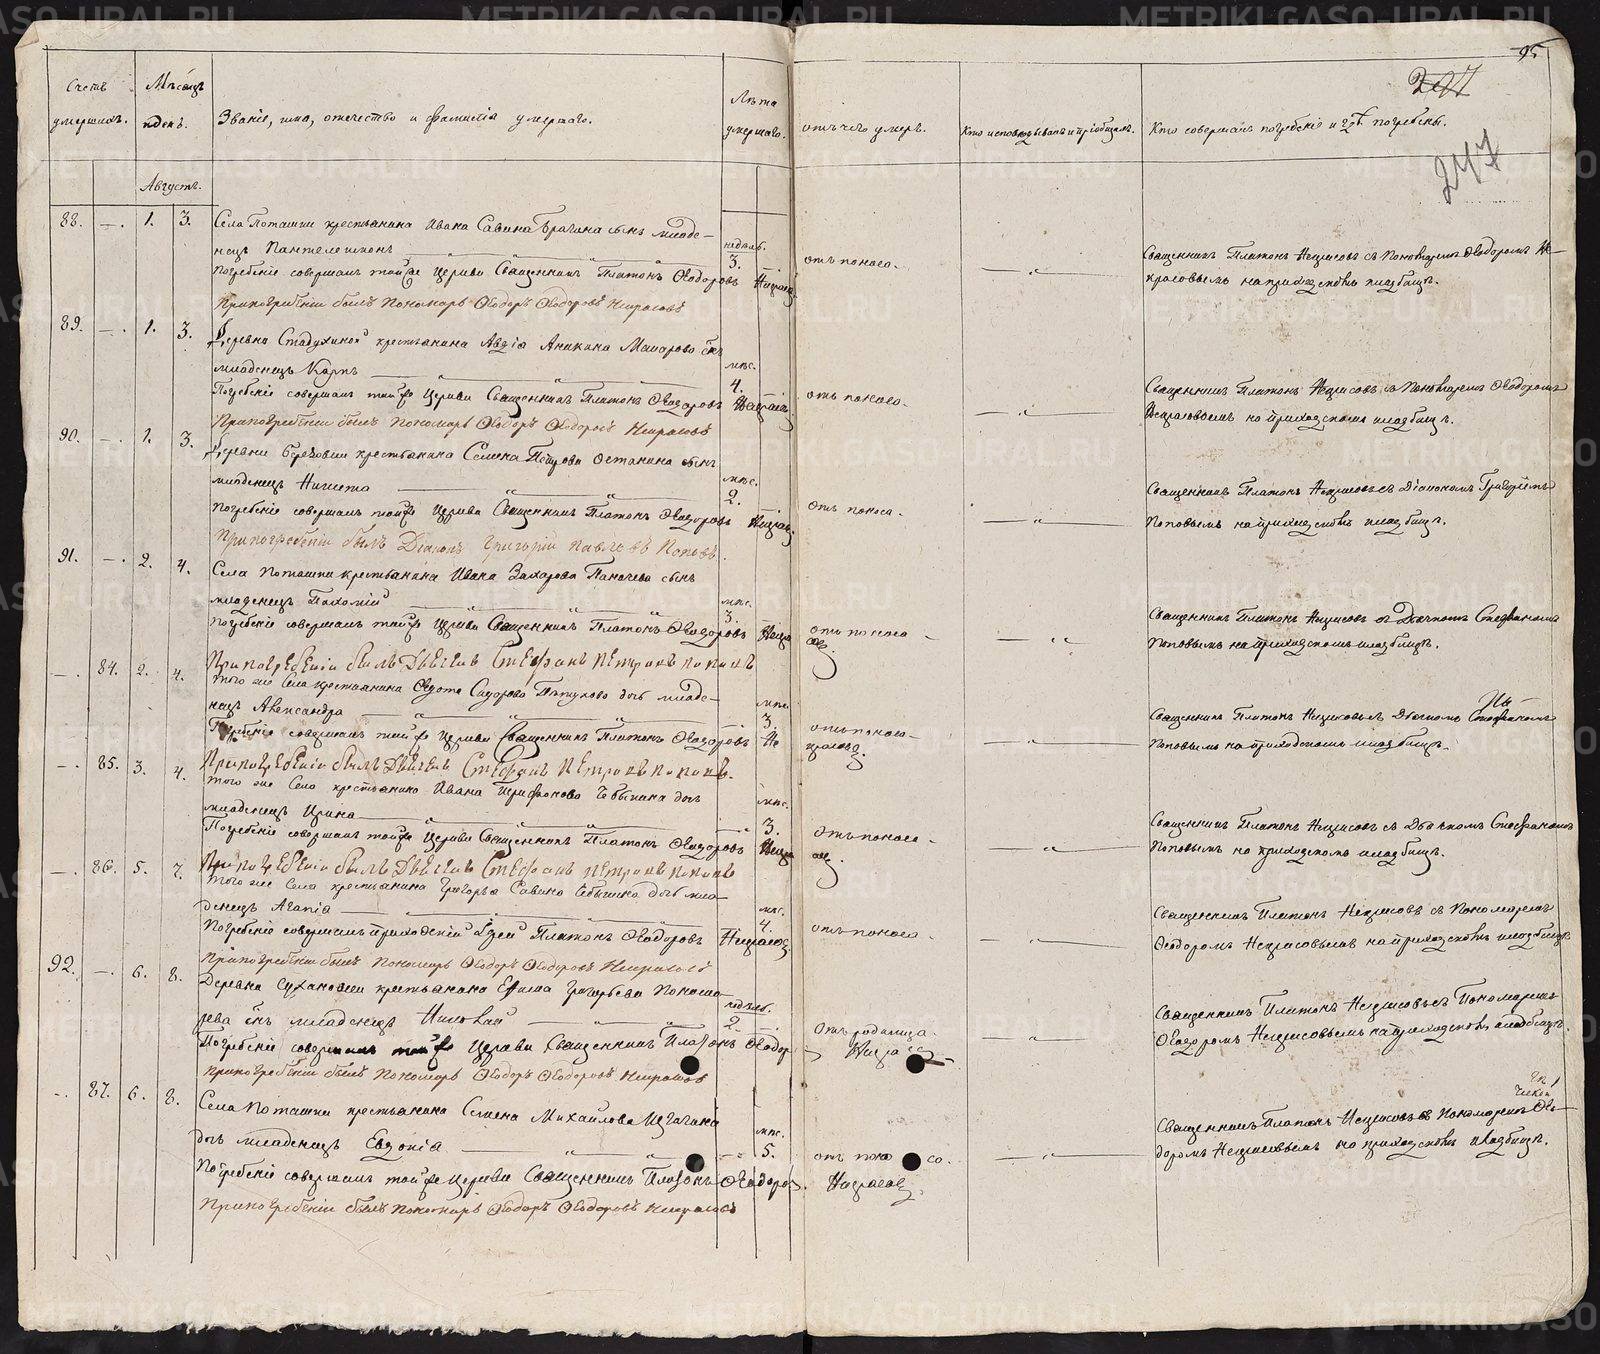 95
247
Счетъ умершихъ.
Мѣсяцъ и день.
Званіе, имя, отечество и фамилія умершаго.
Лѣта умершаго.
отъ чего умеръ.
Кто исповѣдывалъ и пріобщалъ.
Кто совершалъ погребеніе и гдѣ погребены.
247
Августъ.
88. — 1. 3. Села Поташки крестьянина Ивана Савина Брагина сынъ младе-
нецъ Пантелеимонъ недѣль. 3. отъ поноса.
Священникъ Платонъ Некрасовъ съ Пономаремъ Ѳеодоромъ Не-
красовымъ на приходскомъ кладбищѣ.
Погребеніе совершалъ той же Церкви Священникъ Платонъ Ѳеодоровъ Некрасовъ
При погребеніи былъ Пономарь Ѳеодоръ Ѳеодоровъ Некрасовъ
89. — 1. 3. Деревни Стадухиной крестьянина Авдія Аникина Макарова сынъ
младенецъ Карпъ мѣс. 4. отъ поноса.
Священникъ Платонъ Некрасовъ съ Пономаремъ Ѳеодоромъ
Некрасовымъ на приходскомъ кладбищѣ.
Погребеніе совершалъ той же Церкви Священникъ Платонъ Ѳеодоровъ Некрасовъ
При погребеніи былъ Пономарь Ѳеодоръ Ѳеодоровъ Некрасовъ
90. — 1. 3. Деревни Березовки крестьянина Семена Петрова Останина сынъ
младенецъ Никита мѣс. 2. отъ поноса.
Священникъ Платонъ Некрасовъ съ Діакономъ Григоріемъ
Поповымъ на приходскомъ кладбищѣ.
Погребеніе совершалъ той же Церкви Священникъ Платонъ Ѳеодоровъ Некрасовъ
При погребеніи былъ Діаконъ Григорій Павловъ Поповъ.
91. — 2. 4. Села Поташки крестьянина Ивана Захарова сынъ
младенецъ Пахомій мѣс. 3. отъ поноса
Священникъ Платонъ Некрасовъ съ Дьячкомъ Стефаномъ
Поповымъ на приходскомъ кладбищѣ.
Погребеніе совершалъ той же Церкви Священникъ Платонъ Ѳеодоровъ Некрасовъ
При погребеніи былъ Дьячекъ Стефанъ Петровъ Поповъ
— 84. 2. 4. того же Села крестьянина Ѳедота Сидорова Пѣтухова дочь младе-
нецъ Александра мѣс. 3. отъ поноса.
Священникъ Платонъ Некрасовъ съ Дьячкомъ Стефаномъ
Поповымъ на приходскомъ кладбищѣ.
Погребеніе совершалъ той же Церкви Священникъ Платонъ Ѳеодоровъ Некрасовъ
При погребеніи былъ Дьячекъ Стефанъ Петровъ Поповъ.
— 85. 3. 4. того же Села крестьянина Ивана дочь
младенецъ Ирина мѣс. 3. отъ поноса.
Священникъ Платонъ Некрасовъ съ Дьячкомъ Стефаномъ
Поповымъ на приходскомъ кладбищѣ.
Погребеніе совершалъ той же Церкви Священникъ Платонъ Ѳеодоровъ Некрасовъ
При погребеніи былъ Дьячекъ Стефанъ Петровъ Поповъ
— 86. 5. 7. того же Села крестьянина Григорья Савина дочь мла-
денецъ Агапія мѣс. 4. отъ поноса.
Священникъ Платонъ Некрасовъ съ Пономаремъ
Ѳеодоромъ Некрасовымъ на приходскомъ кладбищѣ
Погребеніе совершалъ приходскій Іерей Платонъ Ѳеодоровъ Некрасовъ
При погребеніи былъ Пономарь Ѳеодоръ Ѳеодоровъ Некрасовъ
92. — 6. 8. Деревни Сухановки крестьянина Ефима Григорьева Понома-
рева сынъ младенецъ Николай недѣль. 2. отъ родимца.
Священникъ Платонъ Некрасовъ съ Пономаремъ
Ѳеодоромъ Некрасовымъ на приходскомъ кладбищѣ.
Погребеніе совершалъ той же Церкви Священникъ Платонъ Ѳеодоровъ Некрасовъ
При погребеніи былъ Пономарь Ѳеодоръ Ѳеодоровъ Некрасовъ
— 87. 6. 8. Села Поташки крестьянина Семена Михайлова
дочь младенецъ Евдокія мѣс. 5. отъ поноса.
Священникъ Платонъ Некрасовъ съ Пономаремъ Ѳео-
доромъ Некрасовымъ на приходскомъ кладбищѣ.
Погребеніе совершалъ той же Церкви Священникъ Платонъ Ѳеодоровъ Некрасовъ
При погребеніи былъ Пономарь Ѳеодоръ Ѳеодоровъ Некрасовъ
METRIKI.GASO-URAL.RU